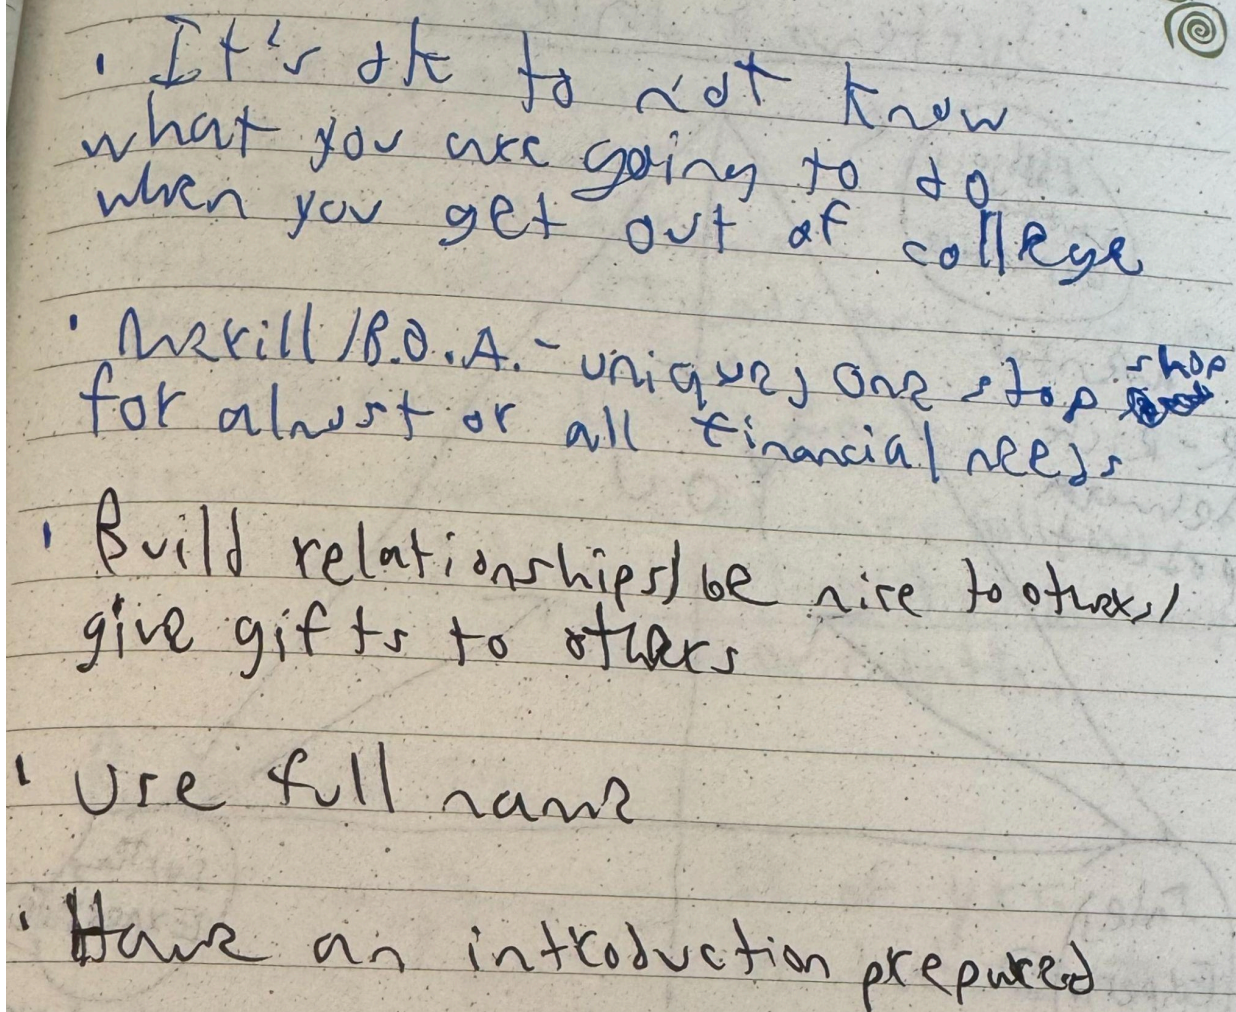 · It's ok to not know
what you are going to do
when you get out of college
· Merill/B.O.A. - unique, one stop shop
for almost or all financial needs
· Build relationships/be nice to others/
give gifts to others
· Use full name
· Have an introduction prepared